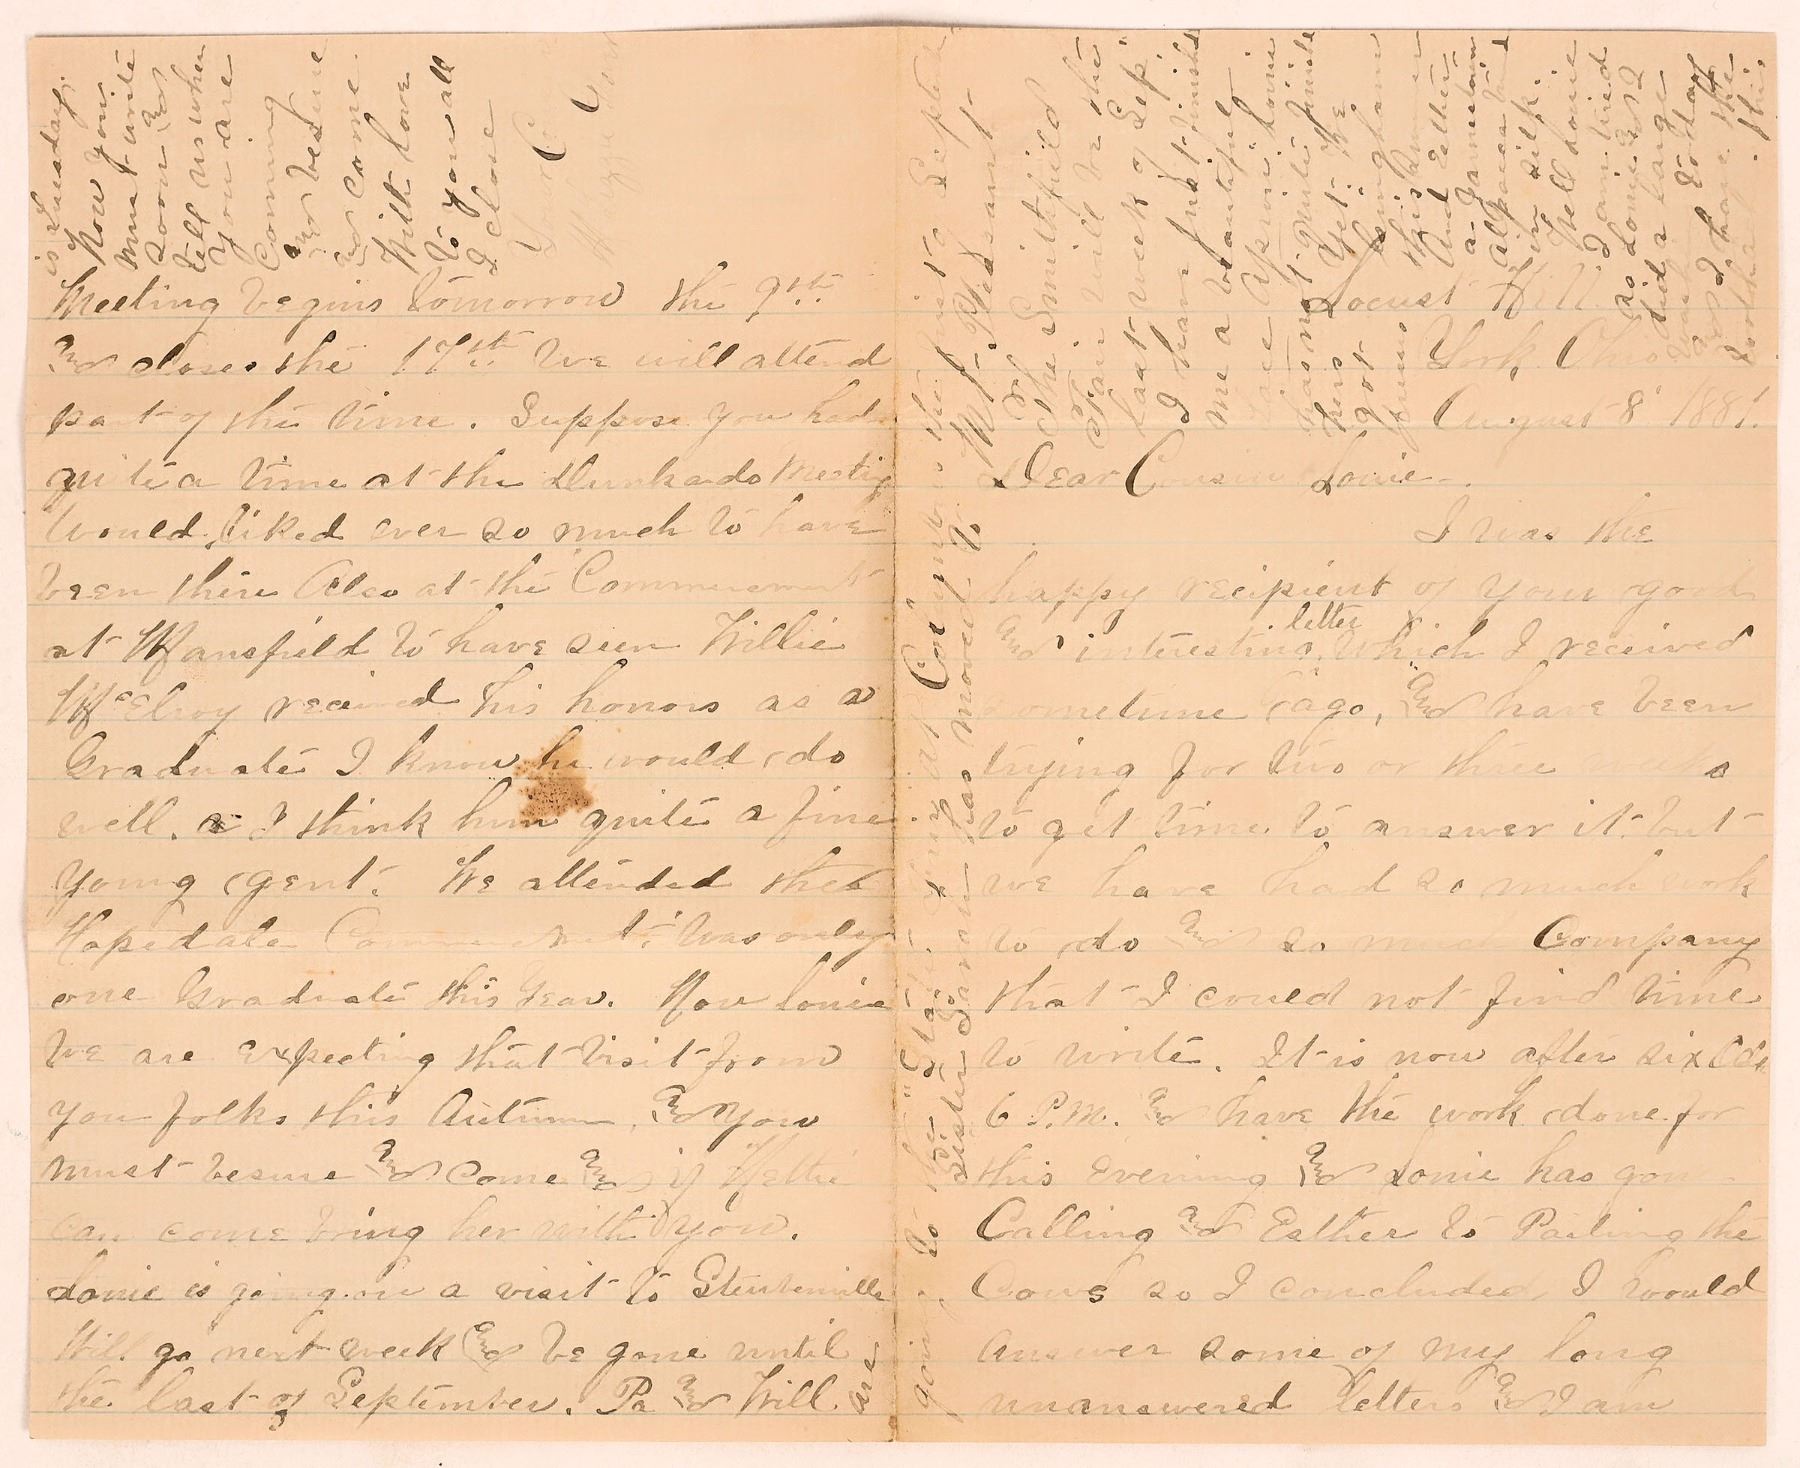 Locust Hill
York, Ohio
August 8 1881.
Dear Cousin Lonie.
I was the
happy recipient of your good
and interesting letter which I received
sometime ago, and have been
trying for two or three weeks
to get time to answer it but
we have had so much work
to do and so much Company
that I could not find time
to write. It is now after six
6 P.M. and have the work done for
this evening and Lonie has gon
Calling and Esther to Pailing the
Cows so I concluded I would
answer some of my long
unanswered letters and I am
Meeting begins tomorrow the 9th
and closes the 17th We will attend
part of the time. Suppose you had
quite a time at the Dunkards Meeting
would liked ever so much to have
been there Also at the Commencement
at Mansfield to have seen Willie
McElroy received his honors as a
Graduate I know he would do
well. I think him quite a fine
young gent. We attended the
Hopedale Commencement was only
one Graduate this Year. Now Lonie
we are expecting that visit from
you folks this Autumn, and you
must besure and come and if Hettie
can come bring her with you.
Lonie is going on a visit to Steubenville
Will go next week and be gone until
the last of September. Pa and Will are
going to the "State Fair at Columbus the first of Sept
Sister Samon has moved to Mt. Pleasant
The Smithfield
Fair will be the
last week of Sep.
I have just finished
me a beautiful
apron Lonie
has not quite finished
hers yet. We
got gingham
this summer
And Esther
a
Alpaca
in silk.
Well Lonie
I am tired
as Lonie and I
did a large
wash today
and I have the
this
is Tuesday.
Now you
must write
soon and
tell us when
you are
coming
and besure
and come.
With love
to you all
I close
Your Co